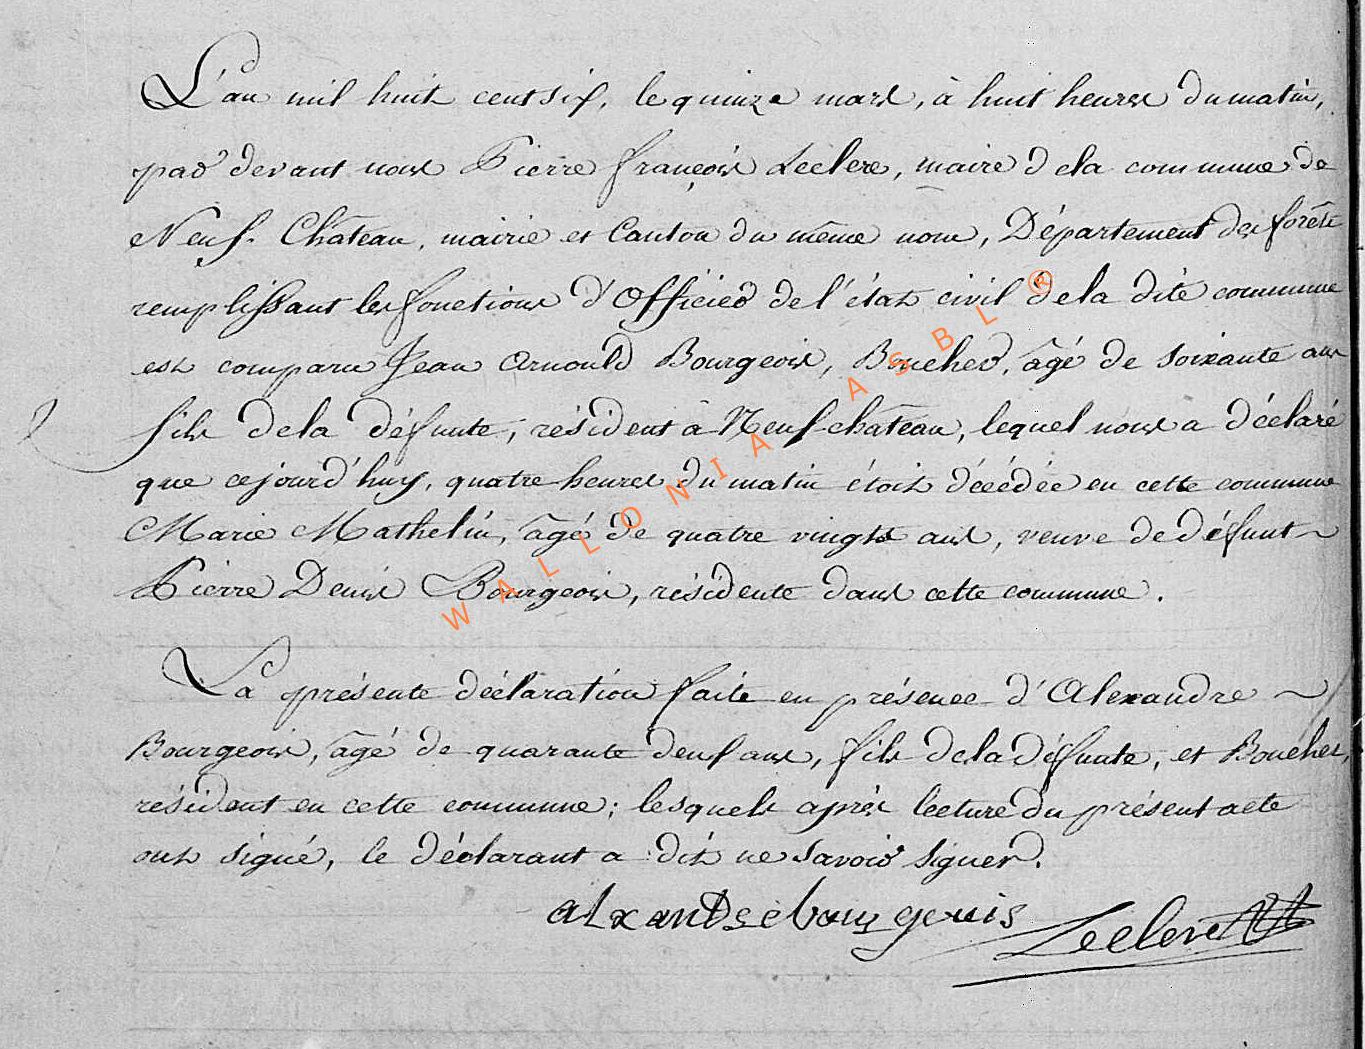 L'an mil huit cent six, le quinze mars, à huit heures du matin,
par devant nous Pierre françois Leclere, maire de la commune de
Neuf-Château, mairie et Canton du même nom, Département des forêts
remplissant les fonctions d'Officier de l'état civil de la dite commune
est comparu Jean Arnould Bourgeois, Boucher, âgé de soixante ans
fils de la défunte, résident à Neufchâteau, lequel nous a déclaré
que cejourd'huy, quatre heures du matin étoit décédée en cette commune
Marie Mathelin, âgé de quatre vingts ans, veuve de défunt
Pierre Denis Bourgeois, résidente dans cette commune.
La présente déclaration faite en présence d'Alexandre
Bourgeois, âgé de quarante deux ans, fils de la défunte, et Boucher,
résident en cette commune; lesquels après lecture du présent acte
ont signé, le déclarant a dit ne savoir signer.
alxandre bourgeois Leclere
WALLONIA ASBL ®